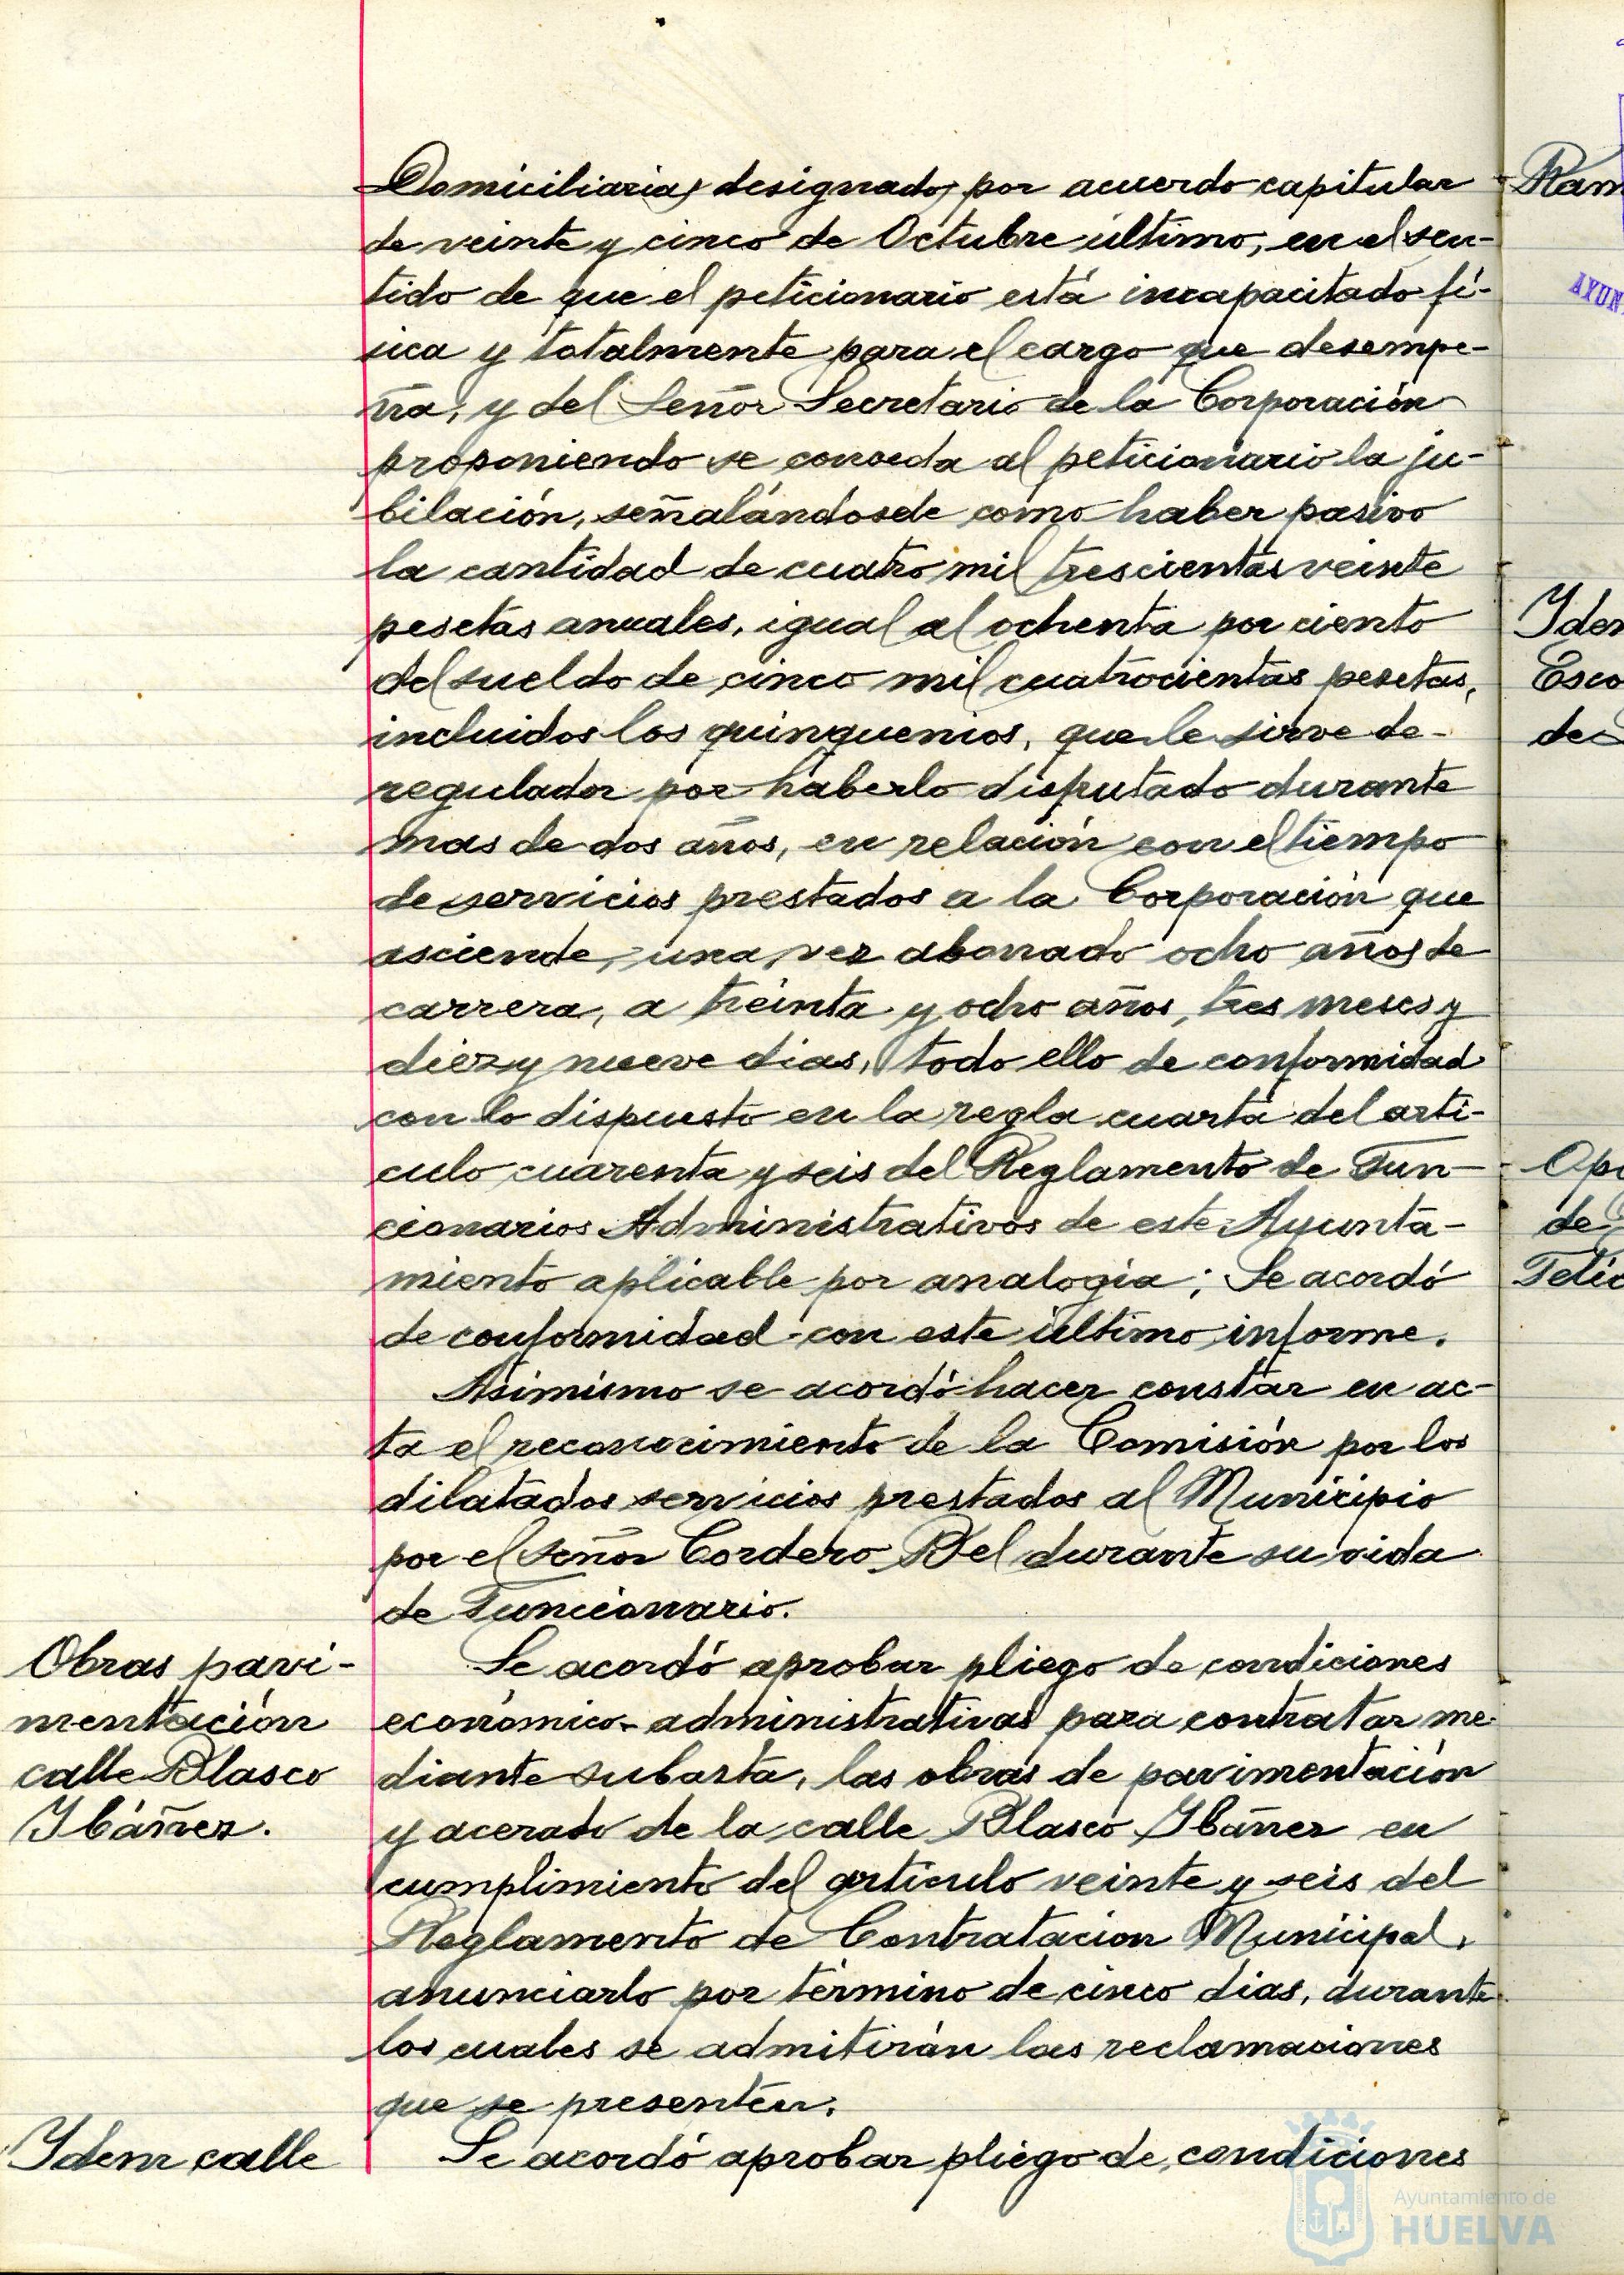 Domiciliaria, designado, por acuerdo capitular
de veinte y cinco de Octubre último, en el sen-
tido de que el peticionario está incapacitado fí-
sica y totalmente para el cargo que desempe-
ña, y del Señor Secretario de la Corporación
proponiendo se conceda al peticionario la ju-
bilación, señalándosele como haber pasivo
la cantidad de cuatro mil trescientas veinte
pesetas anuales, igual al ochenta por ciento
del sueldo de cinco mil cuatrocientas pesetas,
incluidos los quinquenios, que le sirve de-
regulador por haberlo disfrutado durante
mas de dos años, en relación con el tiempo
de servicios prestados a la Corporación que
asciende, una vez abonado ocho años de
carrera, a treinta y ocho años, tres meses y
diez y nueve dias, todo ello de conformidad
con lo dispuesto en la regla cuarta del arti-
culo cuarenta y seis del Reglamento de Fun-
cionarios Administrativos de este Ayunta-
miento aplicable por analogia; Se acordó
de conformidad con este último informe.
Asimismo se acordó hacer constar en ac-
ta el reconocimiento de la Comisión por los
dilatados servicios prestados al Municipio
por el Señor Cordero Bel durante su vida
de Funcionario.
Obras pavi-
mentación
calle Blasco
Ibáñez.
Se acordó aprobar pliego de condiciones
económico-administrativas para contratar me-
diante subasta, las obras de pavimentación
y acerado de la calle Blasco Ibáñez en
cumplimiento del artículo veinte y seis del
Reglamento de Contratacion Municipal,
anunciarlo por término de cinco dias, durante
los cuales se admitirán las reclamaciones
que se presenten.
Idem calle
Se acordó aprobar pliego de condiciones
Ayuntamiento de
HUELVA